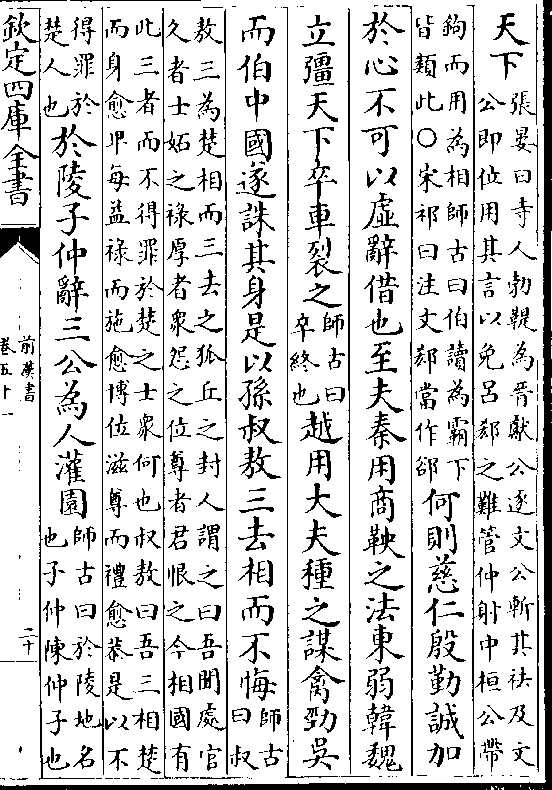 天下張晏曰寺人勃鞮為晉獻公逐文公斬其袪及文
公即位用其言以免呂郄之難管仲射中桓公帶
鉤而用為相師古曰伯讀為霸下
皆類此○宋祁曰注文郄當作郤何則慈仁殷勤誠加
於心不可以虛辭借也至夫秦用商鞅之法東弱韓魏
立彊天下卒車裂之師古曰
卒終也越用大夫種之謀禽勁吳
而伯中國遂誅其身是以孫叔敖三去相而不悔師古
曰叔
敖三為楚相而三去之狐丘之封人謂之曰吾聞處官
久者士妬之祿厚者衆怨之位尊者君恨之今相國有
此三者而不得罪於楚之士衆何也叔敖曰吾三相楚
而身愈卑每益祿而施愈博位滋尊而禮愈恭是以不
得罪於
楚人也於陵子仲辭三公為人灌園師古曰於陵地名
也子仲陳仲子也
欽定四庫全書
前漢書
卷五十一
二十